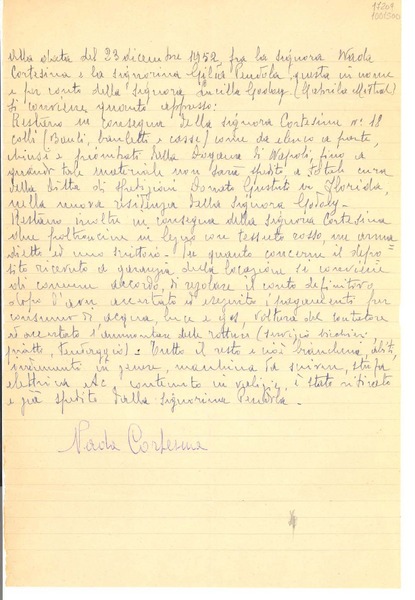 17209
1001500
Alla data del 23 dicembre 1952, fra la signora Nada
Cortesina e la signorina Gilda Pendola, questa in nome
e per conto della signora Lucilla Godoy (Gabriela Mistral)
si conviene quanto appresso:
Restano in consegna della signora Cortesina no. 18
colli (Bauli, bauletti e casse) come da elenco a parte,
chiusi e piombati dalla Dogana di Napoli, fino a
quando tale materiale non sarà spedito, a totale cura
della Ditta di spedizioni Donato Giustiti in Florida,
nella nuova residenza della signora Godoy -
Restano inoltre in consegna della signora Cortesina
due poltroncine in legno con tessuto rosso, un arma
dietto ed uno - Per quanto concerne il depo=
sito ricevuto a garanzia della locazione si conviene
di comune accordo, di regolare il conto definitivo
dopo l'aver accertato ed eseguito i pagamenti per
consumo di acqua, luce e gas, voltura del contatore
ed accertato l'ammontare delle rotture (servizio bicchieri,
piatti, tendaggio) - Tutto il resto e cioè biancheria, abiti,
in genere, macchina da scrivere, stufa
elettrica ec, contenuto in valigie, è stato ritirato
e già spedito dalla signorina Pendola -
Nada Cortesina